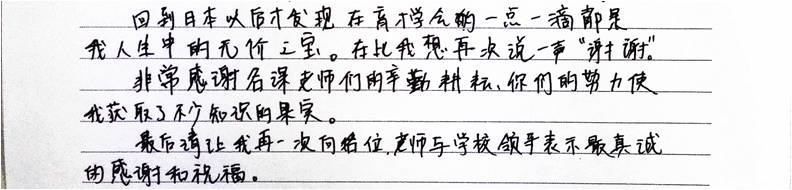 回到日本以后才发现在育才学会的一点一滴都是
我人生中的无价之宝。在此我想再次说一声“谢谢”。
非常感谢各课老师们的辛勤耕耘、你们的努力使
我获取了不少知识的果实。
最后请让我再一次向给位老师与学校领导表示最真诚
的感谢和祝福。